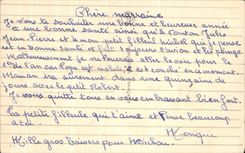 Chère marraine
Je viens te souhaiter une bonne et heureuse année
et une bonne santé ainsi qu'à Tonton Jules
Jean Pierre et à mon petit filleul Michel que je pense
est en bonne santé et fait toujours
Malheureusement je ne pourrais aller le voir pour le
1er de l'an car Papa est malade il est couché en ce moment.
Maman ira sûrement dans une quinzaine de
jours avec le petit Robert.
Je vous quitte tous en vous embrassant bien fort.
La petite filleule qui t'aime et pense beaucoup
à toi.
Monique
Mille gros baisers pour Michou.